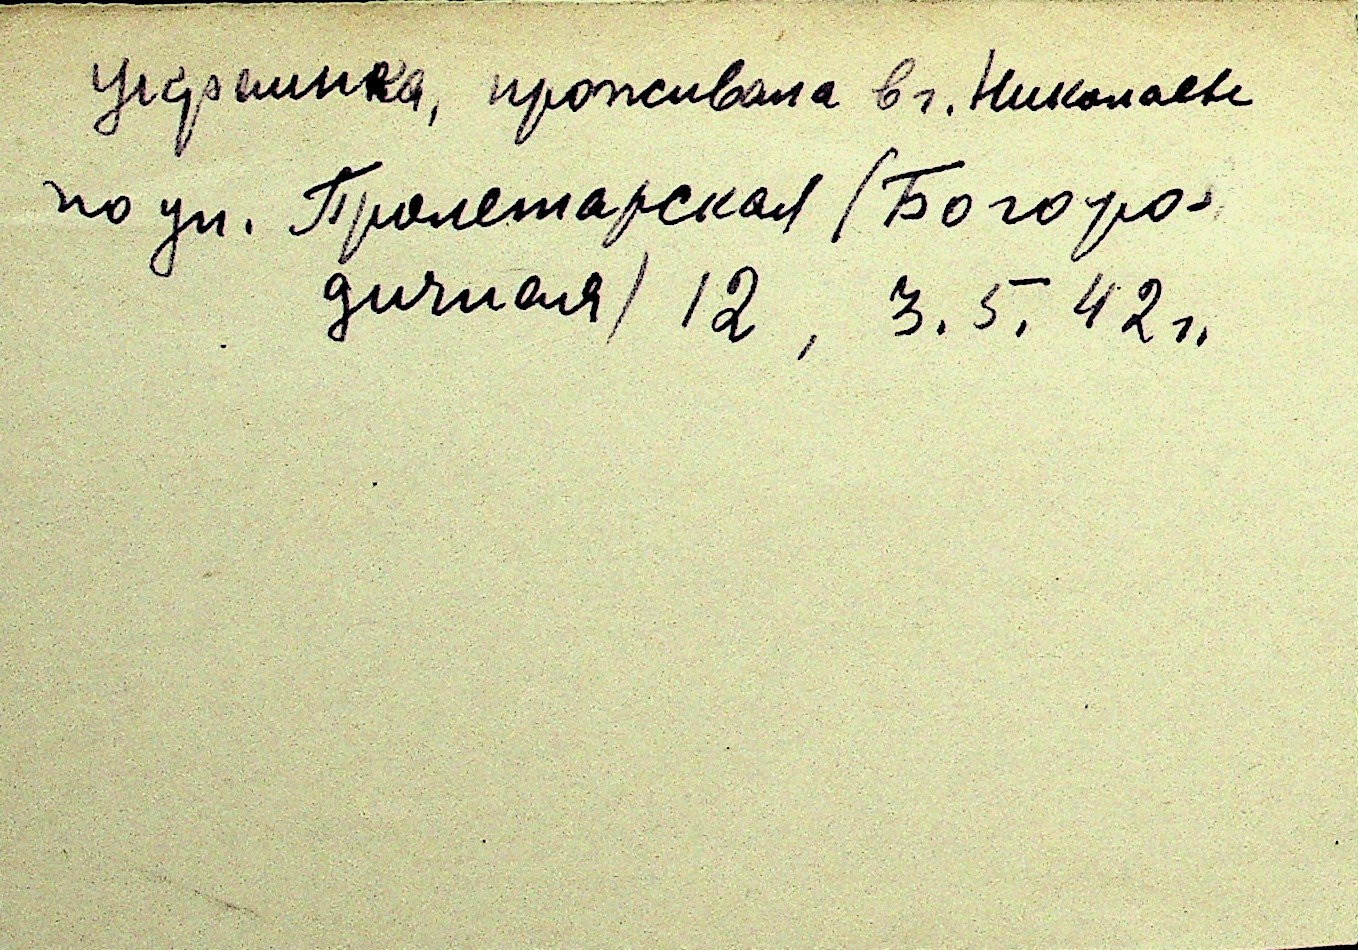 украинка, проживала в г. Николаеве
по ул. Пролетарская (Богоро-
дичная) 12, 3.5.42 г.